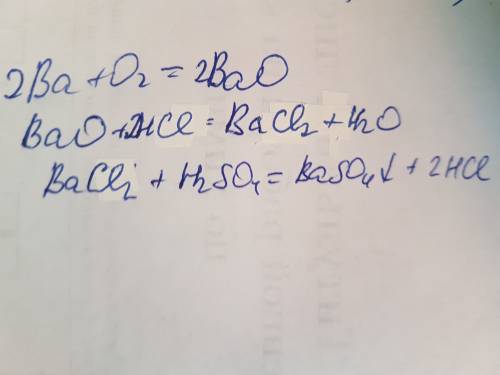 2Ba + O₂ = 2BaO
BaO + 2HCl = BaCl₂ + H₂O
BaCl₂ + H₂SO₄ = BaSO₄↓ + 2HCl